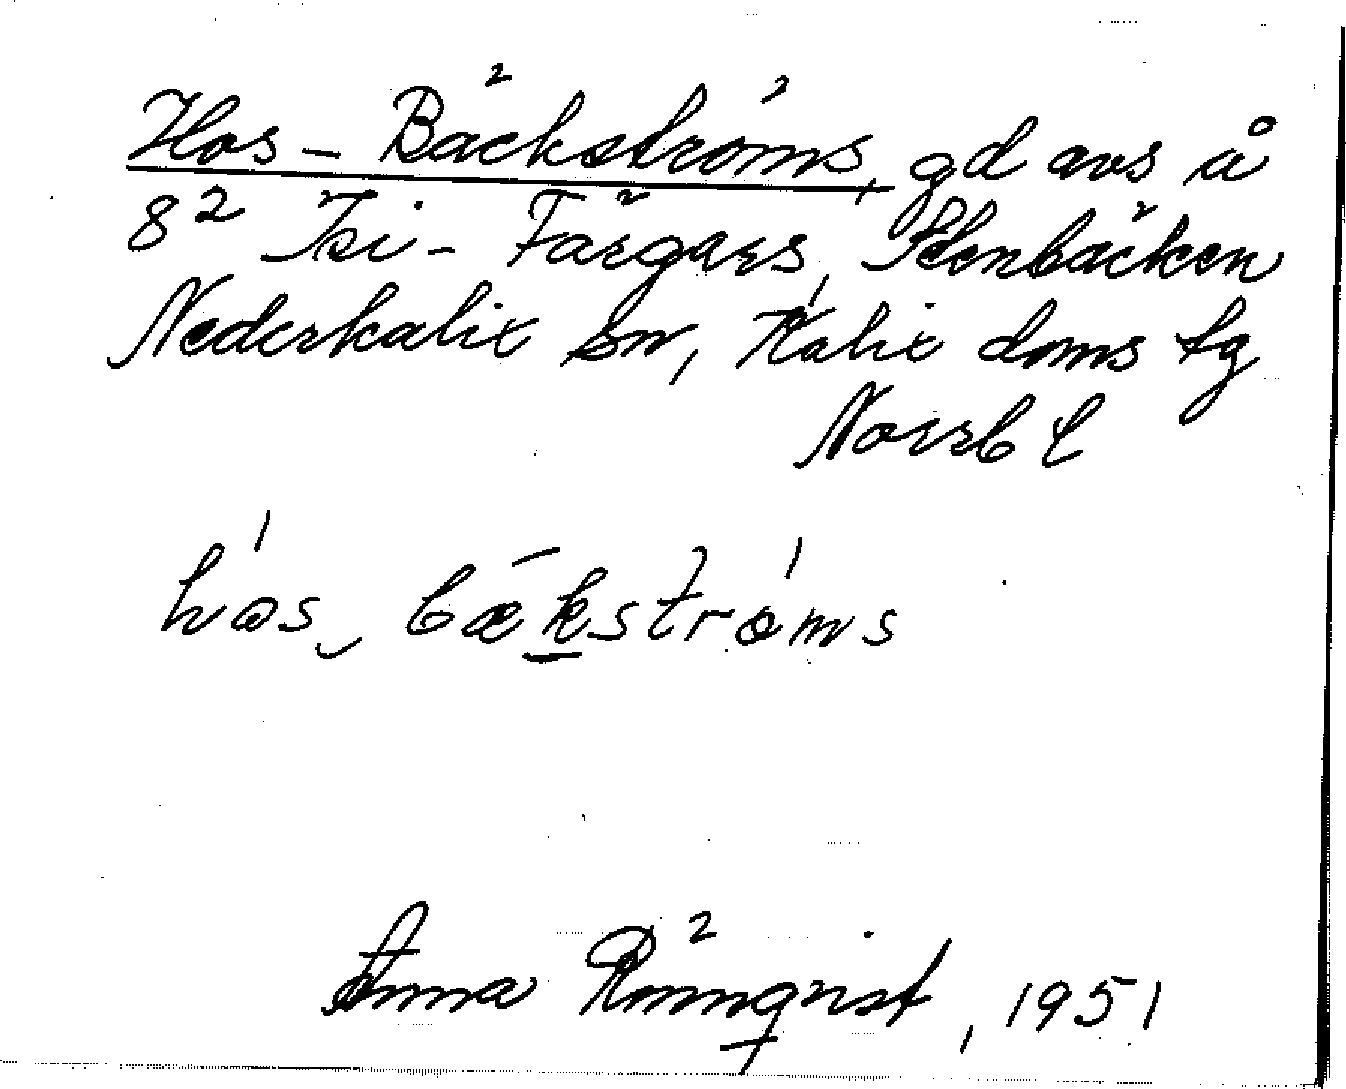 Hos-Bäckströms, gd avs å
8² Isi-Färgars, Stenbäcken
Nederkalix sn, Kalix doms tg
Norrb l
hós‿ bækstrøms
Anna Rönnqvist, 1951